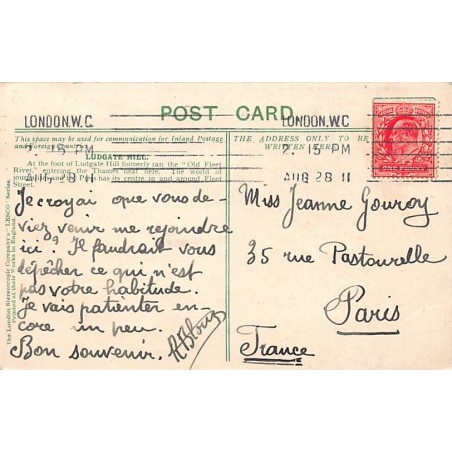 LONDON.W.C.
7. 15 PM
AUG 28 11
POST CARD
LONDON.W.C
7. 15 PM
AUG 28 11
This space may be used for communication for Inland Postage
THE ADDRESS ONLY TO BE
WRITTEN HERE.
LUDGATE HILL.
At the foot of Ludgate Hill formerly ran the "Old Fleet
River," entering the Thames near here. The world of
its centre in and around Fleet
Street.
The London Stereoscopic Company's "LESCO" Series.
Printed at their Works in England.
Je croyai que vous de-
viez venir me rejoindre
ici? Il faudrait vous
dépêcher ce qui n'est
pas votre habitude.
Je vais patienter en-
core un peu.
Bon souvenir.
Miss Jeanne Gouroy
35 rue Pastourelle
Paris
France
ONE PENNY